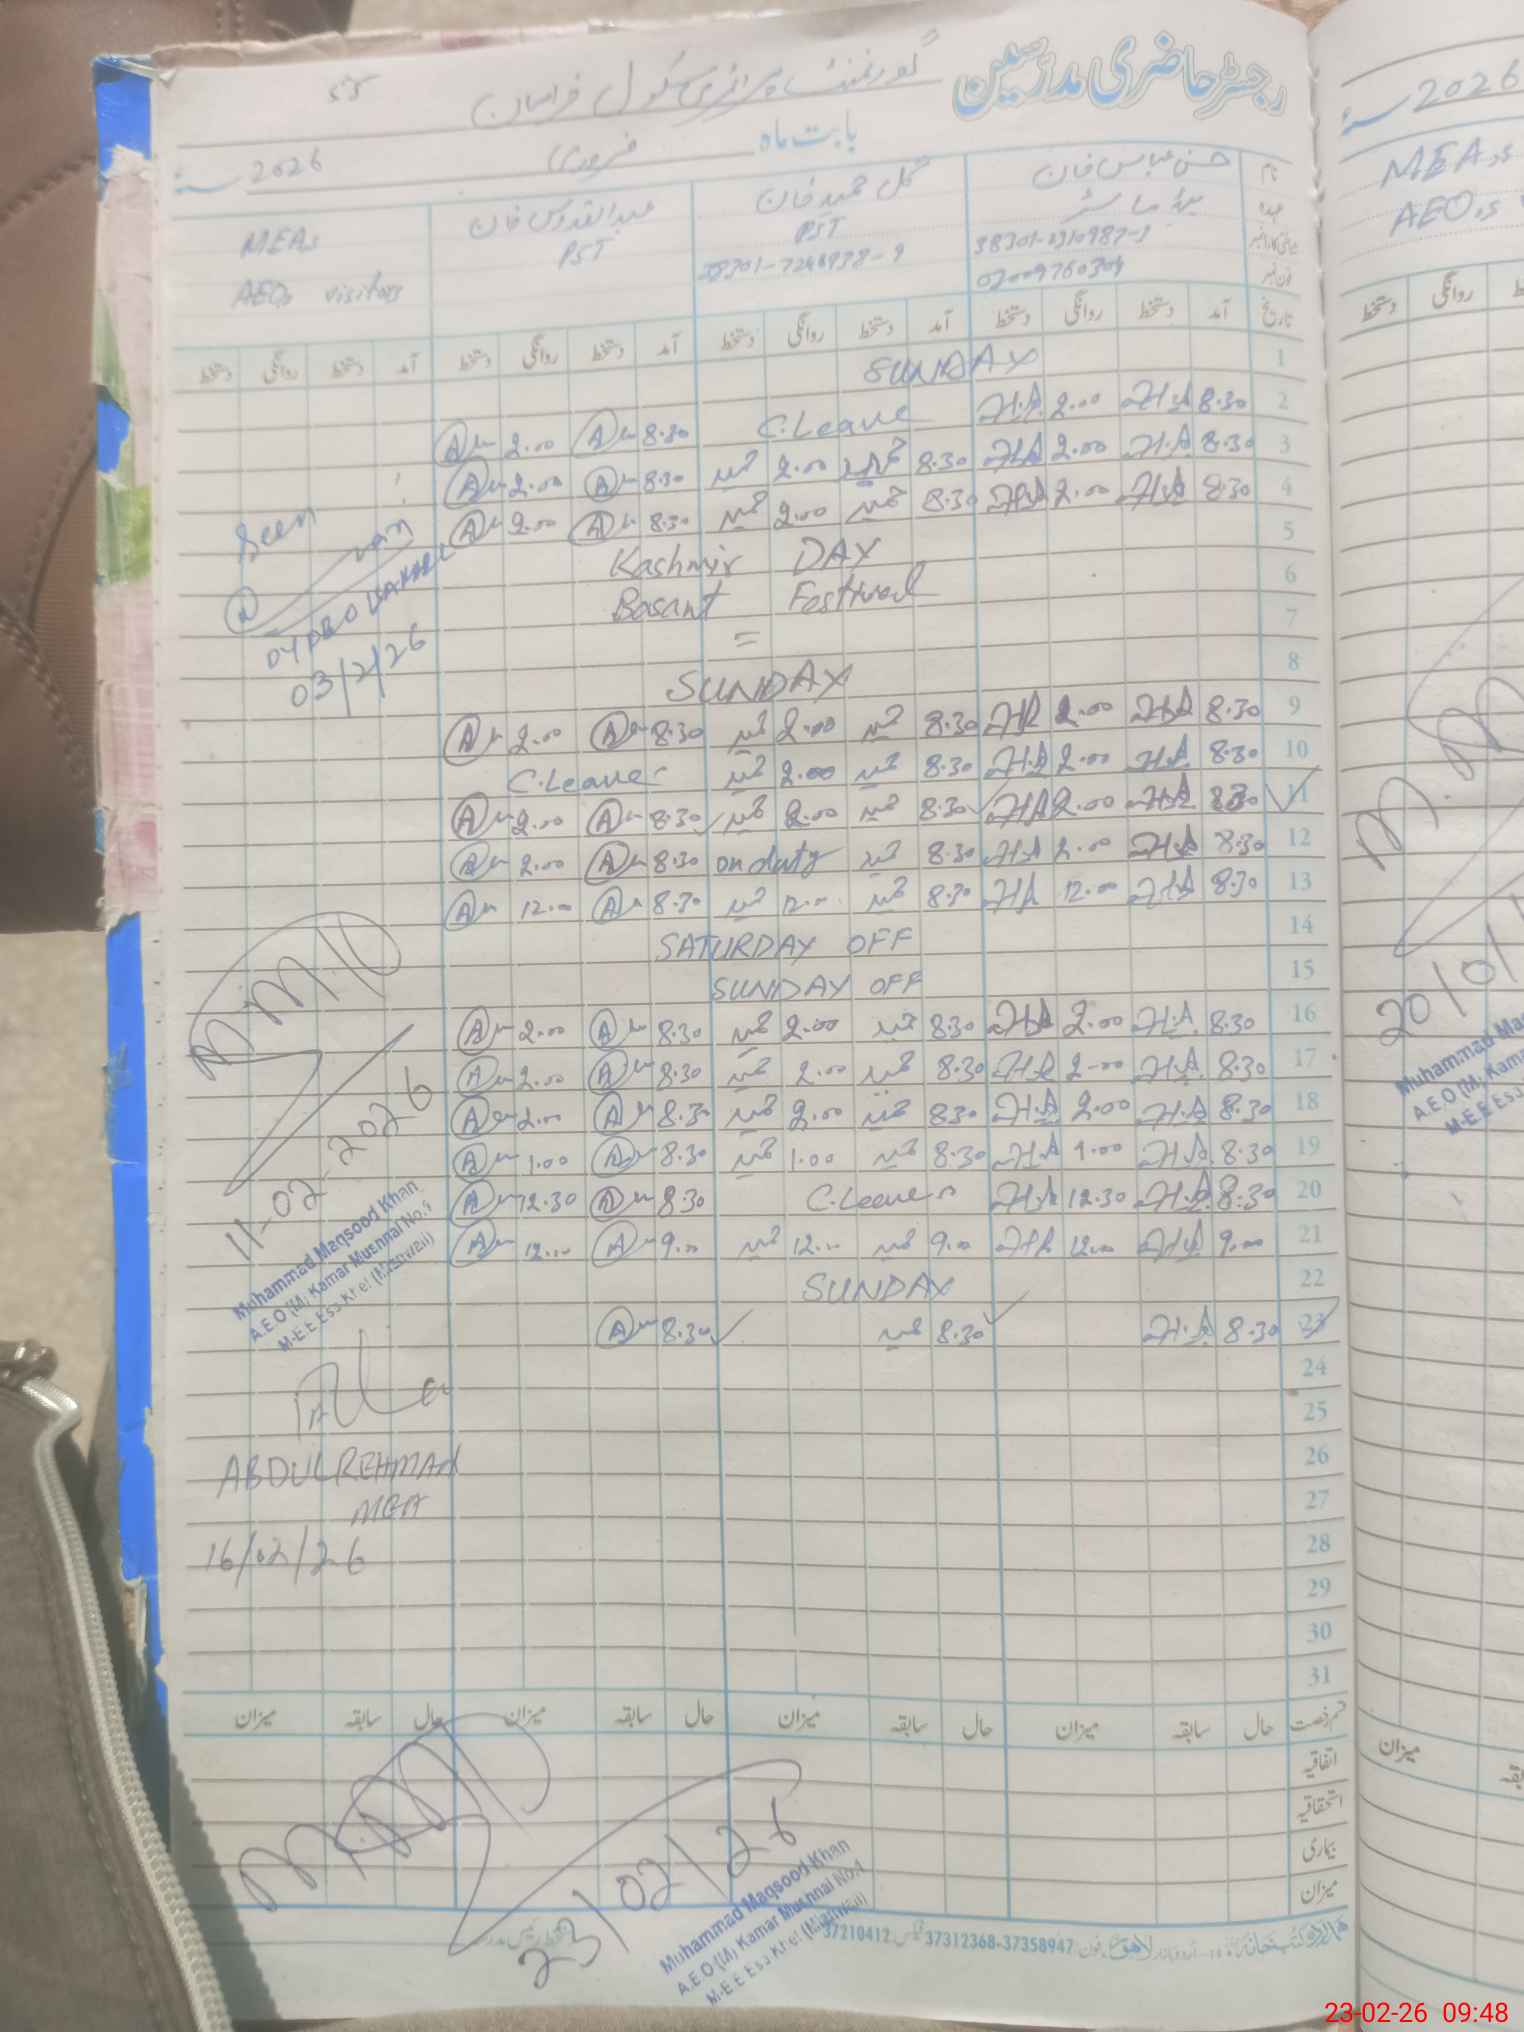 رجسٹر حاضری مدرسین
گورنمنٹ پرائمری سکول
بابت ماہ فروری 2026
نام حسن عباس خان گل حمید خان عبدالقدوس خان MEAs
عہدہ ہیڈ ماسٹر PST PST AEOs visitors
تاریخ آمد دستخط روانگی دستخط آمد دستخط روانگی دستخط آمد دستخط روانگی دستخط آمد دستخط روانگی دستخط
1 SUNDAY
2 8.30 H.A 2.00 H.A C.Leave 8.30 A 2.00 A
3 8.30 H.A 2.00 H.A 8.30 حمید 2.00 حمید 8.30 A 2.00 A
4 8.30 H.A 2.00 H.A 8.30 حمید 2.00 حمید 8.30 A 2.00 A
Seen
5 Kashmir DAY
6 Basant Festival
7 =
03/2/26
8 SUNDAY
9 8.30 H.A 2.00 H.A 8.30 حمید 2.00 حمید 8.30 A 2.00 A
10 8.30 H.A 2.00 H.A 8.30 حمید 2.00 حمید C.Leave
11 8.30 H.A 2.00 H.A 8.30 حمید 2.00 حمید 8.30 A 2.00 A
12 8.30 H.A 2.00 H.A 8.30 حمید on duty 8.30 A 2.00 A
13 8.30 H.A 12.00 H.A 8.30 حمید 12.00 حمید 8.30 A 12.00 A
14 SATURDAY OFF
15 SUNDAY OFF
16 8.30 H.A 2.00 H.A 8.30 حمید 2.00 حمید 8.30 A 2.00 A
17 8.30 H.A 2.00 H.A 8.30 حمید 2.00 حمید 8.30 A 2.00 A
18 8.30 H.A 2.00 H.A 8.30 حمید 2.00 حمید 8.30 A 2.00 A
19 8.30 H.A 1.00 H.A 8.30 حمید 1.00 حمید 8.30 A 1.00 A
20 8.30 H.A 12.30 H.A C.Leave 8.30 A 12.30 A
21 9.00 H.A 12.00 H.A 9.00 حمید 12.00 حمید 9.00 A 12.00 A
11-02-2026
Muhammad Maqsood Khan
A.E.O (M) Kamar Mushnai No.1
M-E.E Esa Khel (Mianwali)
22 SUNDAY
23 8.30 H.A 8.30 حمید 8.30 A
24
25
26
ABDULREHMAN
27
MEA
28
16/02/26
29
30
31
قسم رخصت حال سابقہ میزان حال سابقہ میزان حال سابقہ میزان حال سابقہ میزان
اتفاقیہ
استحقاقیہ
بیماری
میزان
23/02/26
Muhammad Maqsood Khan
A.E.O (M) Kamar Mushnai No.1
M-E.E Esa Khel (Mianwali)
لاہور فون 37312368-37358947 فیکس 37210412
2026
MEA,s
AEO,s
دستخط روانگی
20/01
Muhammad Ma
A.E.O (M) Kama
M-E.E Esa
میزان
23-02-26 09:48